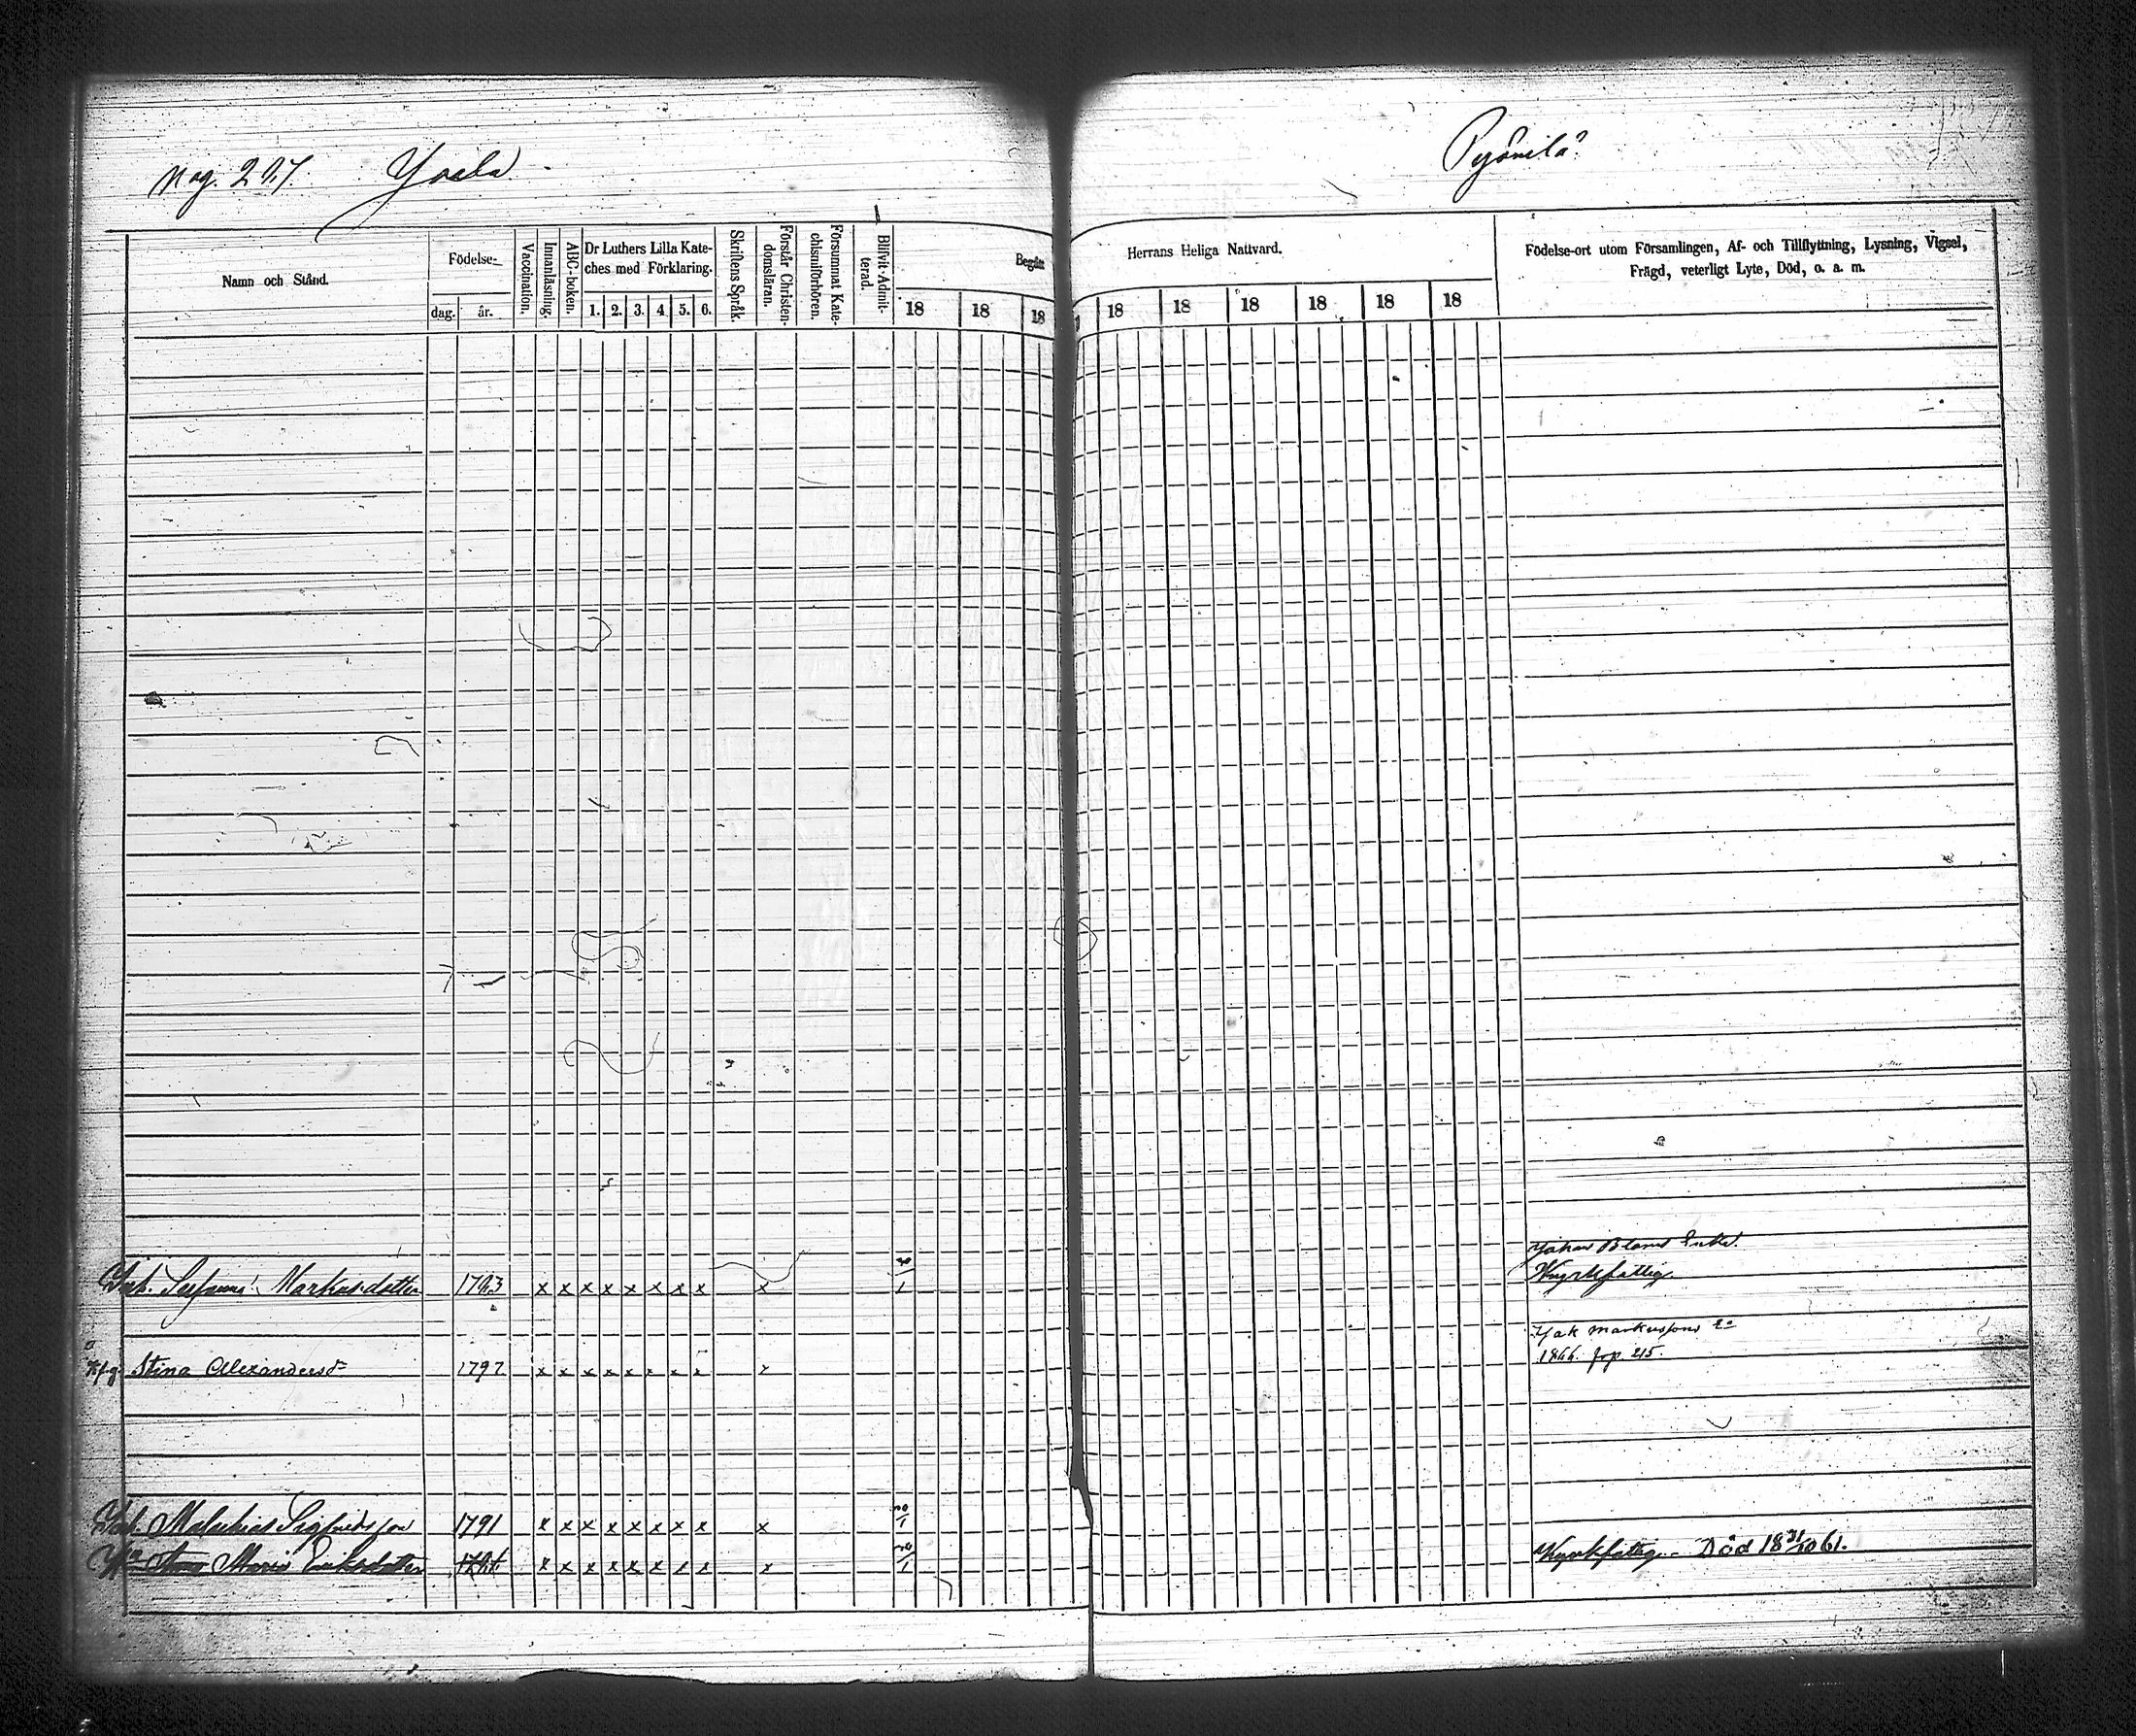 pag. 217. Ysela Pyönilä
Namn och Stånd.
Födelse-
dag. år.
Vaccination.
Innanläsning.
ABC-boken.
Dr Luthers Lilla Kate-
ches med Förklaring.
1. 2. 3. 4. 5. 6.
Skriftens Språk.
Förstår Christen-
domsläran.
Försummat Kate-
chismiförhören.
Blifvit Admit-
terad.
Begått Herrans Heliga Nattvard.
18 18 18 18 18 18 18 18 18
Födelse-ort utom Församlingen, Af- och Tillflyttning, Lysning, Vigsel,
Frägd, veterligt Lyte, Död, o. a. m.
Enka.
Inh. Markusdotter 1793 x x x x x x x x x Kyrkfattig.
Jak Markussons
Stina Alexandersdr 1797 x x x x x x x x x 1866. fop. 215.
Inh. Malakias Sigfridsson 1791 x x x x x x x x x
Maria Eriksdotter x x x x x x x x x Kyrkfattig. - Död 18 31/10 61.